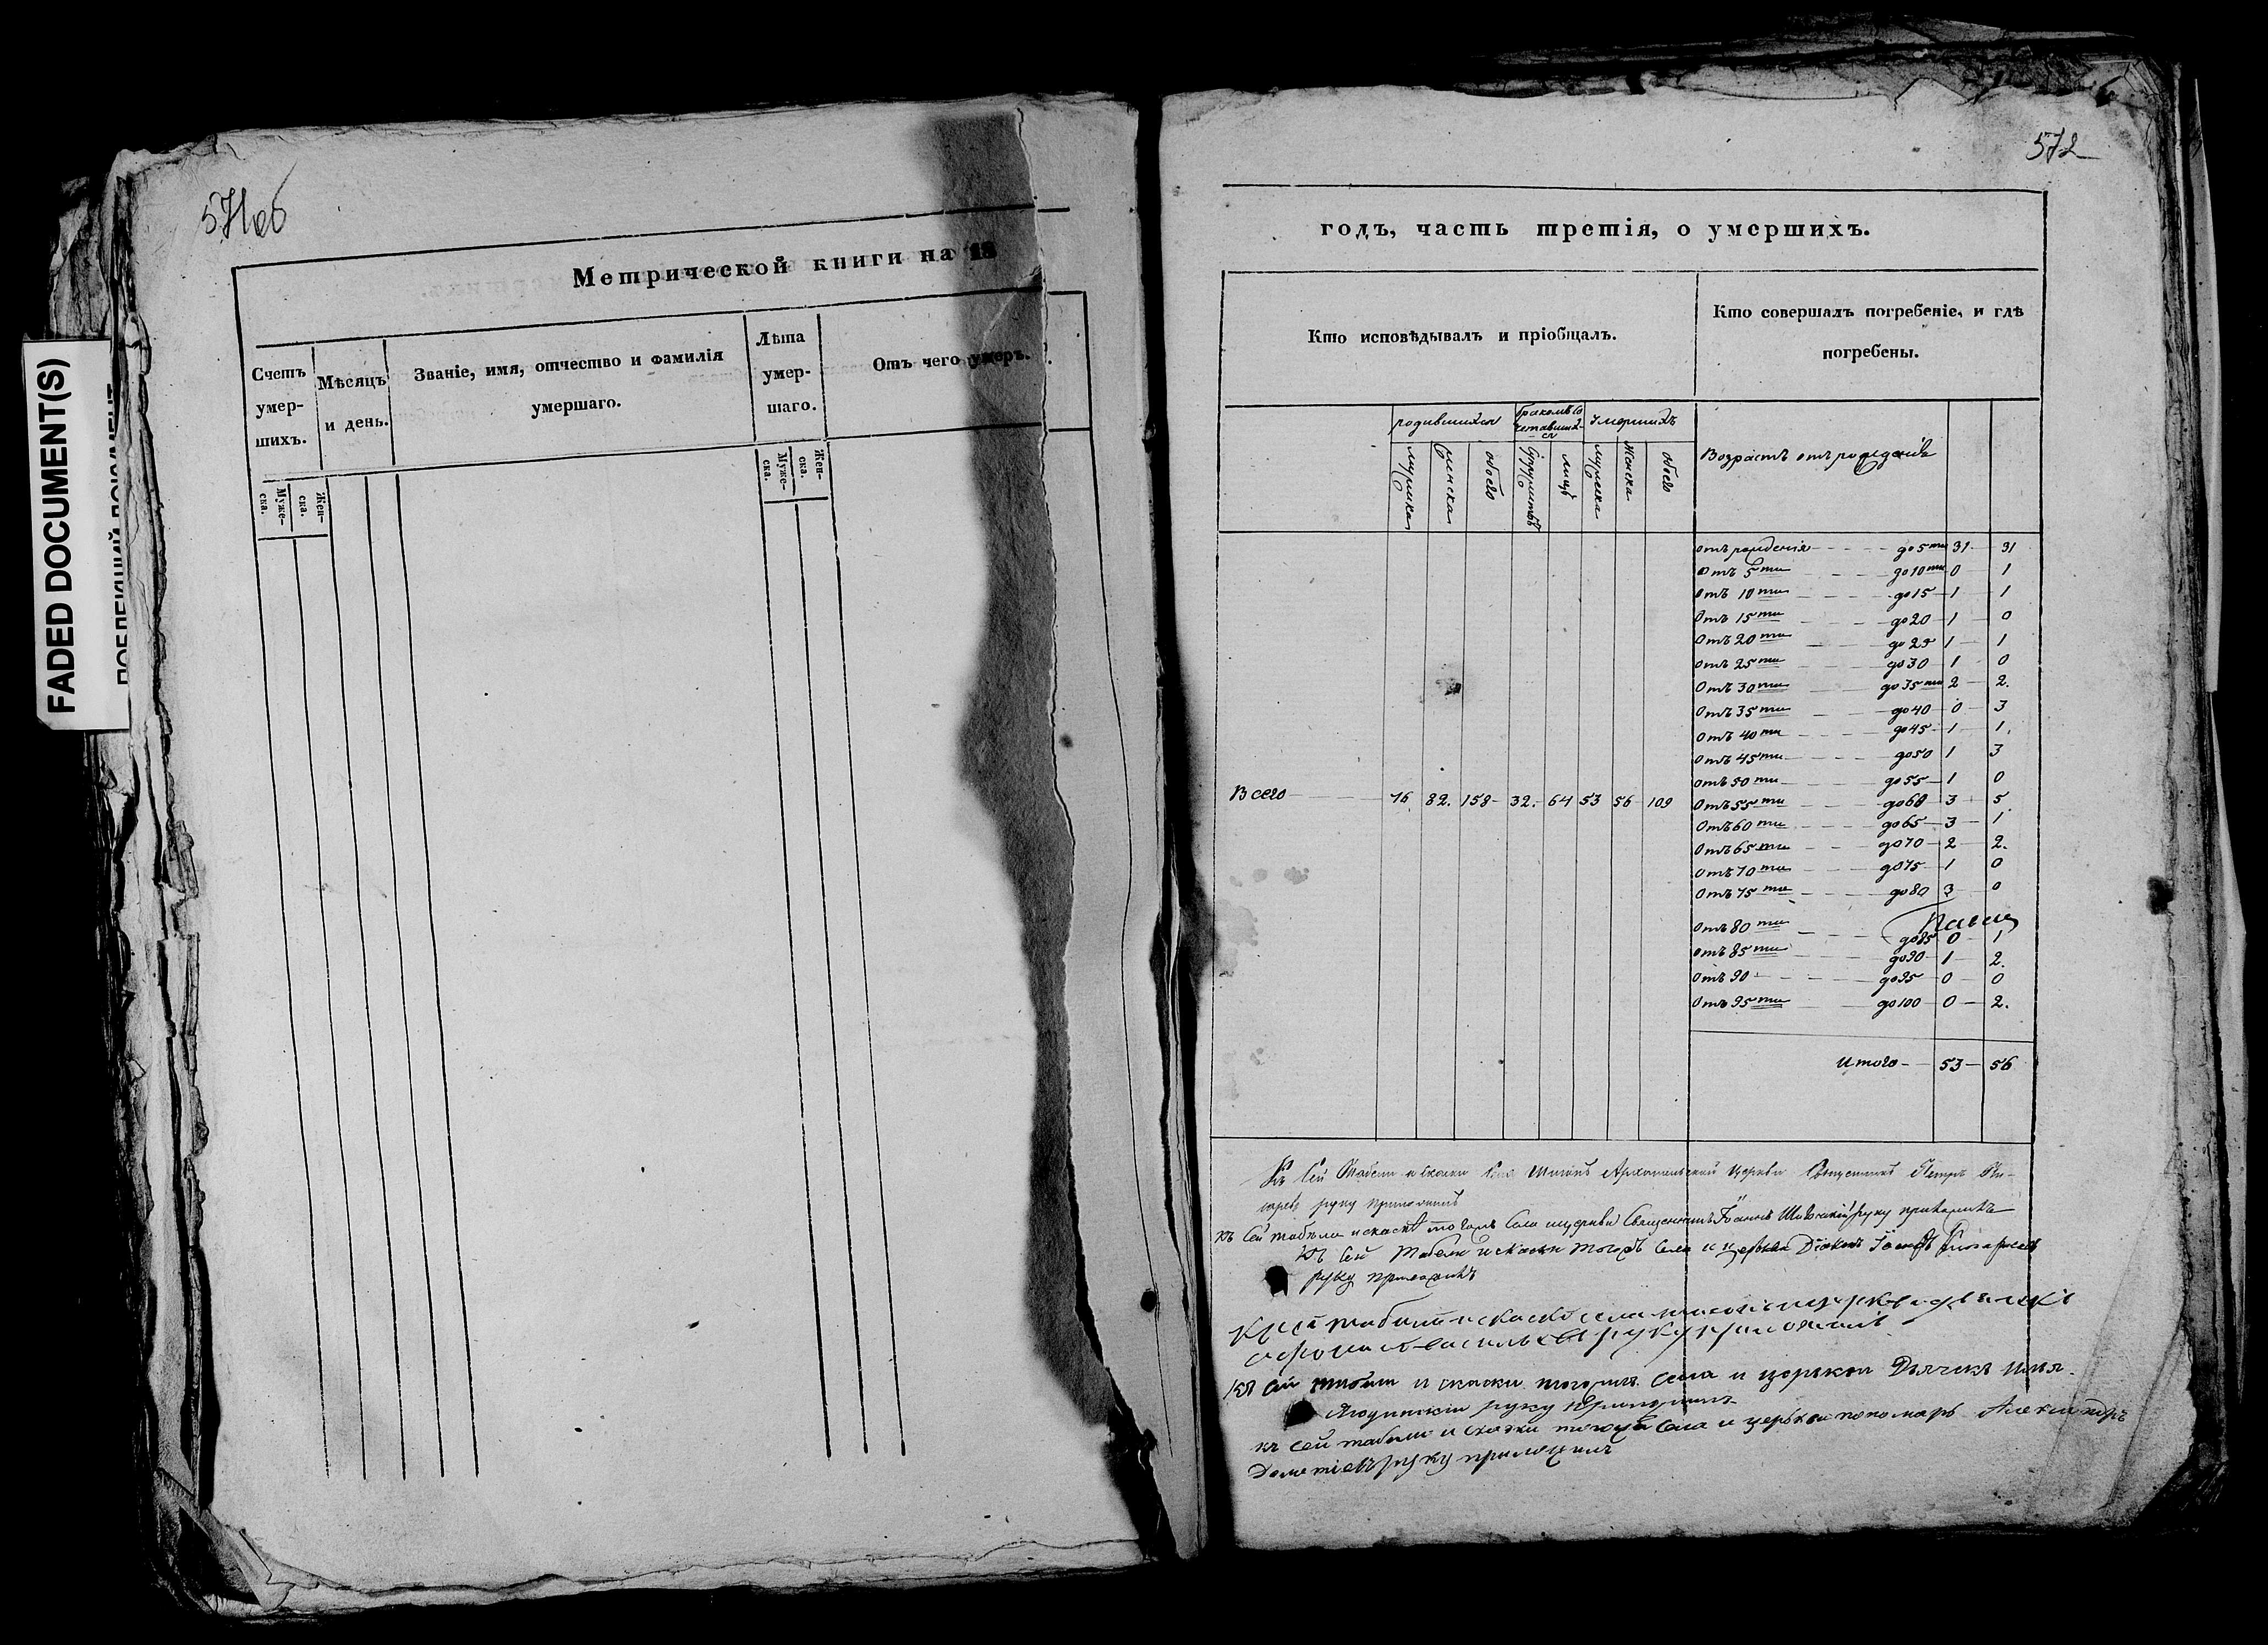 FADED DOCUMENT(S)
571об
Метрической книги на 18
Счетъ умер- шихъ.
Мѣсяцъ и день.
Званіе, имя, отчество и фамилія умершаго.
Лѣта умер- шаго.
Отъ чего умеръ.
Муже- ска.
Жен- ска.
Муже- ска.
Жен- ска.
572
годъ, часть третія, о умершихъ.
Кто исповѣдывалъ и пріобщалъ.
Кто совершалъ погребеніе, и гдѣ погребены.
родившихся
умершихъ
Возрастъ отъ рожденія
мужска
женска
обоего
супружествъ
лицъ
мужеска
женска
обоего
отъ рожденія до 5ти 31 31
отъ 5ти до 10ти 0 1
отъ 10ти до 15 1 1
Отъ 15ти до 20 1 0
Отъ 20ти до 25 1 1
отъ 25ти до 30 1 0
Отъ 30ти до 35ти 2 2.
Отъ 35ти до 40 0 3
отъ 40ти до 45 1 1.
отъ 45ти до 50 1 3
отъ 50ти до 55 1 0
Всего 76. 82. 158 32. 64 53 56 109
Отъ 55ти до 60 3 5.
Отъ 60ти до 65 3 1
Отъ 65ти до 70 2 2.
Отъ 70ти до 75 1 0
Отъ 75ти до 80 3 0
Отъ 80ти до 85 0 1
отъ 85ти до 90 1 2.
отъ 90 до 95 0 0
Отъ 95ти до 100 0 2.
Итого 53 56
Къ сей табели и сказки Архангельской церкви Священникъ Петръ
руку приложилъ
къ сей табели и сказкѣ тогожъ села и церкви Священникъ Іоаннъ руку приложилъ
Къ сей табели и сказки тогожъ села и церкви Діаконъ
руку приложилъ
руку приложилъ
къ сей табели и сказки тогожъ села и церькви Дьячекъ
Ягодинскій руку приложилъ
къ сей табели и сказки тогожъ села и церькви пономарь Александръ
Дометіевъ руку приложилъ